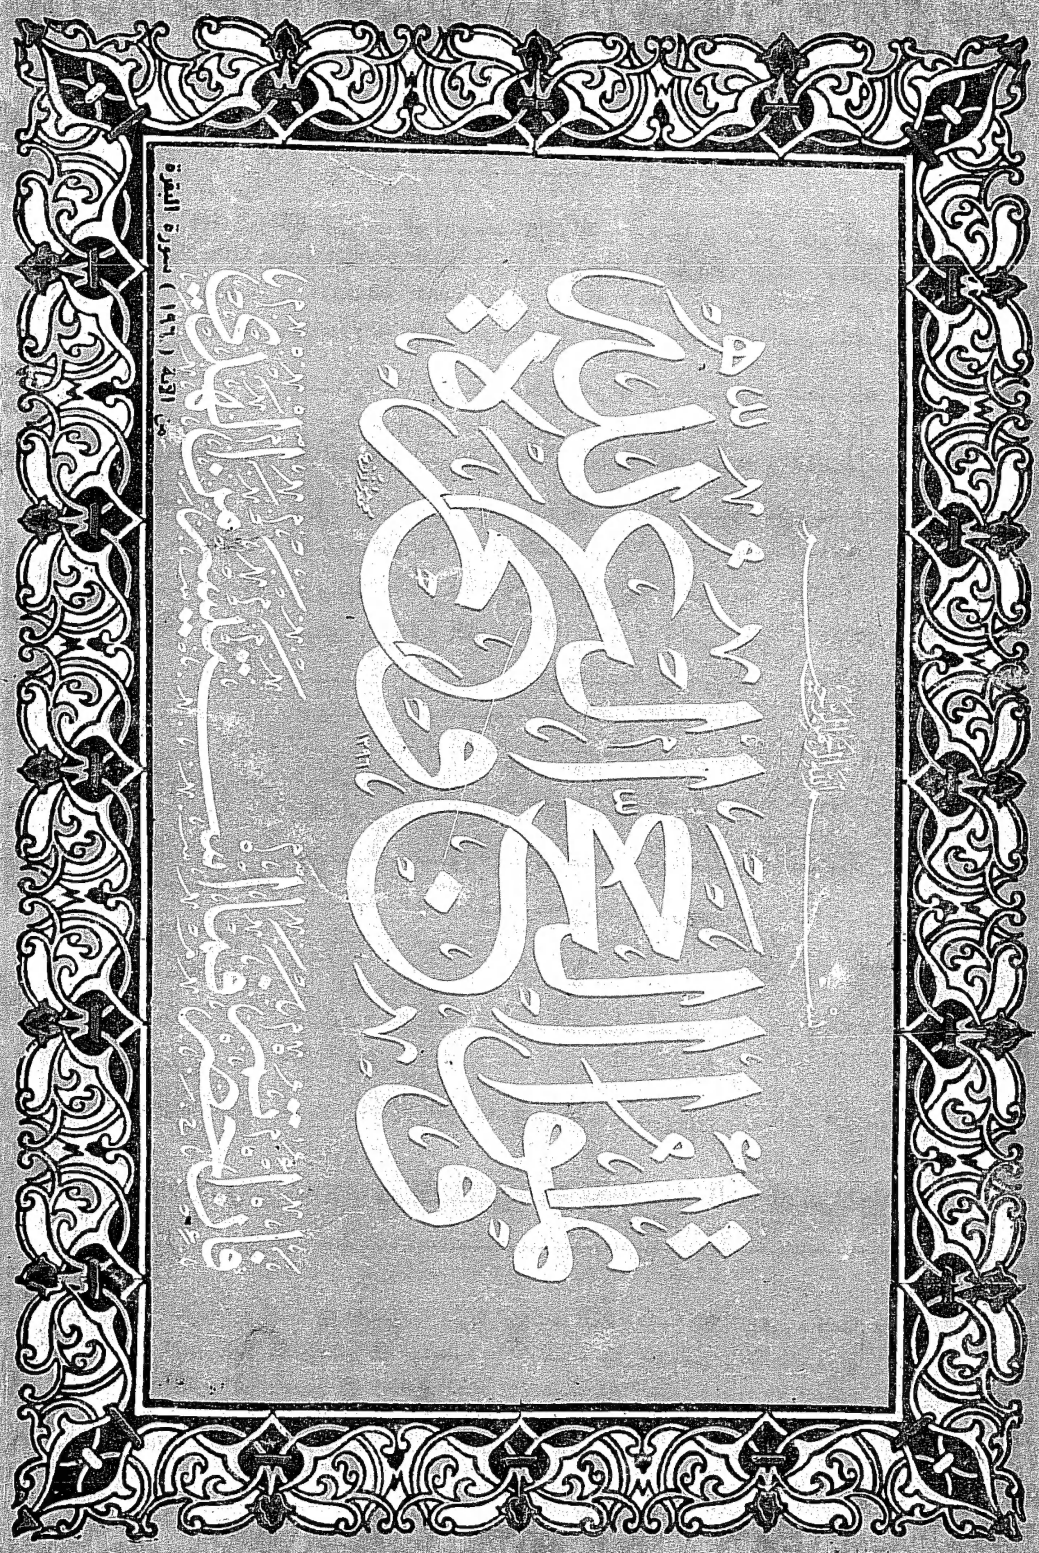 بسم الله الرحمن الرحيم
وَأَتِمُّوا الْحَجَّ وَالْعُمْرَةَ لِلَّهِ
فَإِنْ أُحْصِرْتُمْ فَمَا اسْتَيْسَرَ مِنَ الْهَدْيِ
من الآية ( ١٩٦ ) سورة البقرة